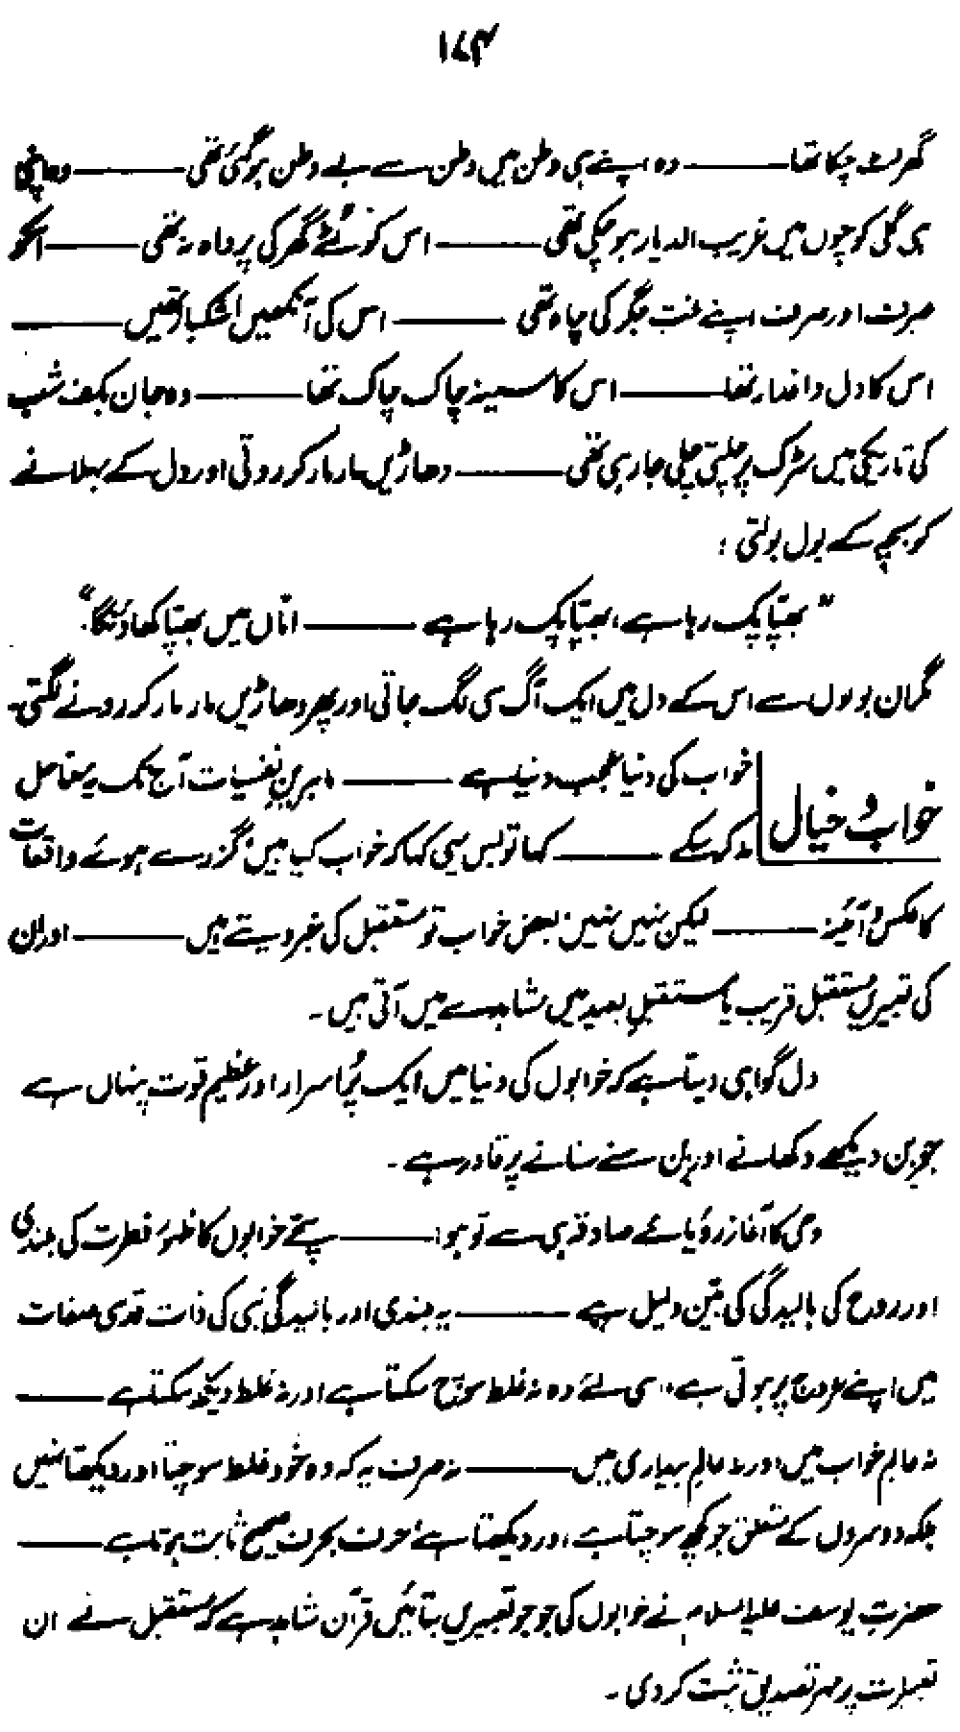 ۱۷۴
گھر لٹ چکا تھا ——— وہ اپنے ہی وطن میں وطن سے بے وطن ہو گئی تھی ——— وہ اپنی
ہی گلی کوچوں میں غریب الدیار ہو چکی تھی ——— اس کو لُٹے گھر کی پرواہ نہ تھی ——— اسکو
صرف اور صرف اپنے لخت جگر کی چاہ تھی ——— اس کی آنکھیں اشکبار تھیں ———
اس کا دل داغدار تھا ——— اس کا سینہ چاک چاک تھا ——— وہ جان بکف شب
کی تاریکی میں سڑک پر چلتی چلی جا رہی تھی ——— دھاڑیں مار مار کر روتی اور دل کے بہلانے
کو بچے کے بول بولتی :
" بھپّا پک رہا ہے، بھپّا پک رہا ہے ——— امّاں میں بھپّا کھاؤنگا"
مگر ان بولوں سے اس کے دل میں ایک آگ سی لگ جاتی اور پھر دھاڑیں مار مار کر رونے لگتی۔
خواب و خیال
خواب کی دنیا عجب دنیا ہے ——— ماہرینِ نفسیات آج تک یہ معمّا حل
نہ کر سکے ——— کہا تو بس یہی کہا کہ خواب کیا ہیں، گزرے ہوئے واقعات
کا عکس و آئینہ ——— لیکن نہیں نہیں، بعض خواب تو مستقبل کی خبر دیتے ہیں ——— اور ان
کی تعبیریں مستقبل قریب یا مستقبلِ بعید میں مشاہدے میں آتی ہیں۔
دل گواہی دیتا ہے کہ خوابوں کی دنیا میں ایک پُر اسرار اور عظیم قوت پنہاں ہے
جو بِن دیکھے دکھانے اور بِن سنے سنانے پر قادر ہے۔
وحی کا آغاز رؤیائے صادقہ ہی سے تو ہوا ——— سچّے خوابوں کا ظہور فطرت کی بلندی
اور روح کی بالیدگی کی بیّن دلیل ہے ——— یہ بلندی اور بالیدگی نبی کی ذات قدسی صفات
میں اپنے عروج پر ہوتی ہے، اسی لئے وہ نہ غلط سوچ سکتا ہے اور نہ غلط دیکھ سکتا ہے ———
نہ عالمِ خواب میں اور نہ عالمِ بیداری میں ——— نہ صرف یہ کہ وہ خود غلط سوچتا اور دیکھتا نہیں
بلکہ دوسروں کے متعلق جو کچھ سوچتا ہے، اور دیکھتا ہے حرف بحرف صحیح ثابت ہوتا ہے ———
حضرت یوسف علیہ السلام نے خوابوں کی جو جو تعبیریں بتائیں قرآن شاہد ہے کہ مستقبل نے ان
تعبیرات پر مہر تصدیق ثبت کر دی۔